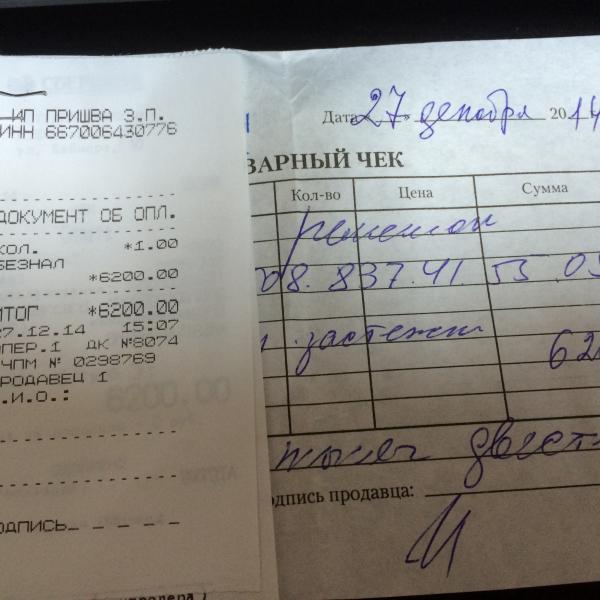 ИП ПРИШВА З.П.
ИНН 667006430776
ДОКУМЕНТ ОБ ОПЛ.
КОЛ. *1.00
БЕЗНАЛ
*6200.00
ИТОГ *6200.00
27.12.14 15:07
ОПЕР.1 ДК №8074
ЧПМ № 0298769
РОДАВЕЦ 1
.И.О.:
ОДПИСЬ
Дата 27 декабря 2014
ВАРНЫЙ ЧЕК
Кол-во Цена Сумма
ремешок
08.837.41 55 05
застежки
620
тысяч двести
одпись продавца: